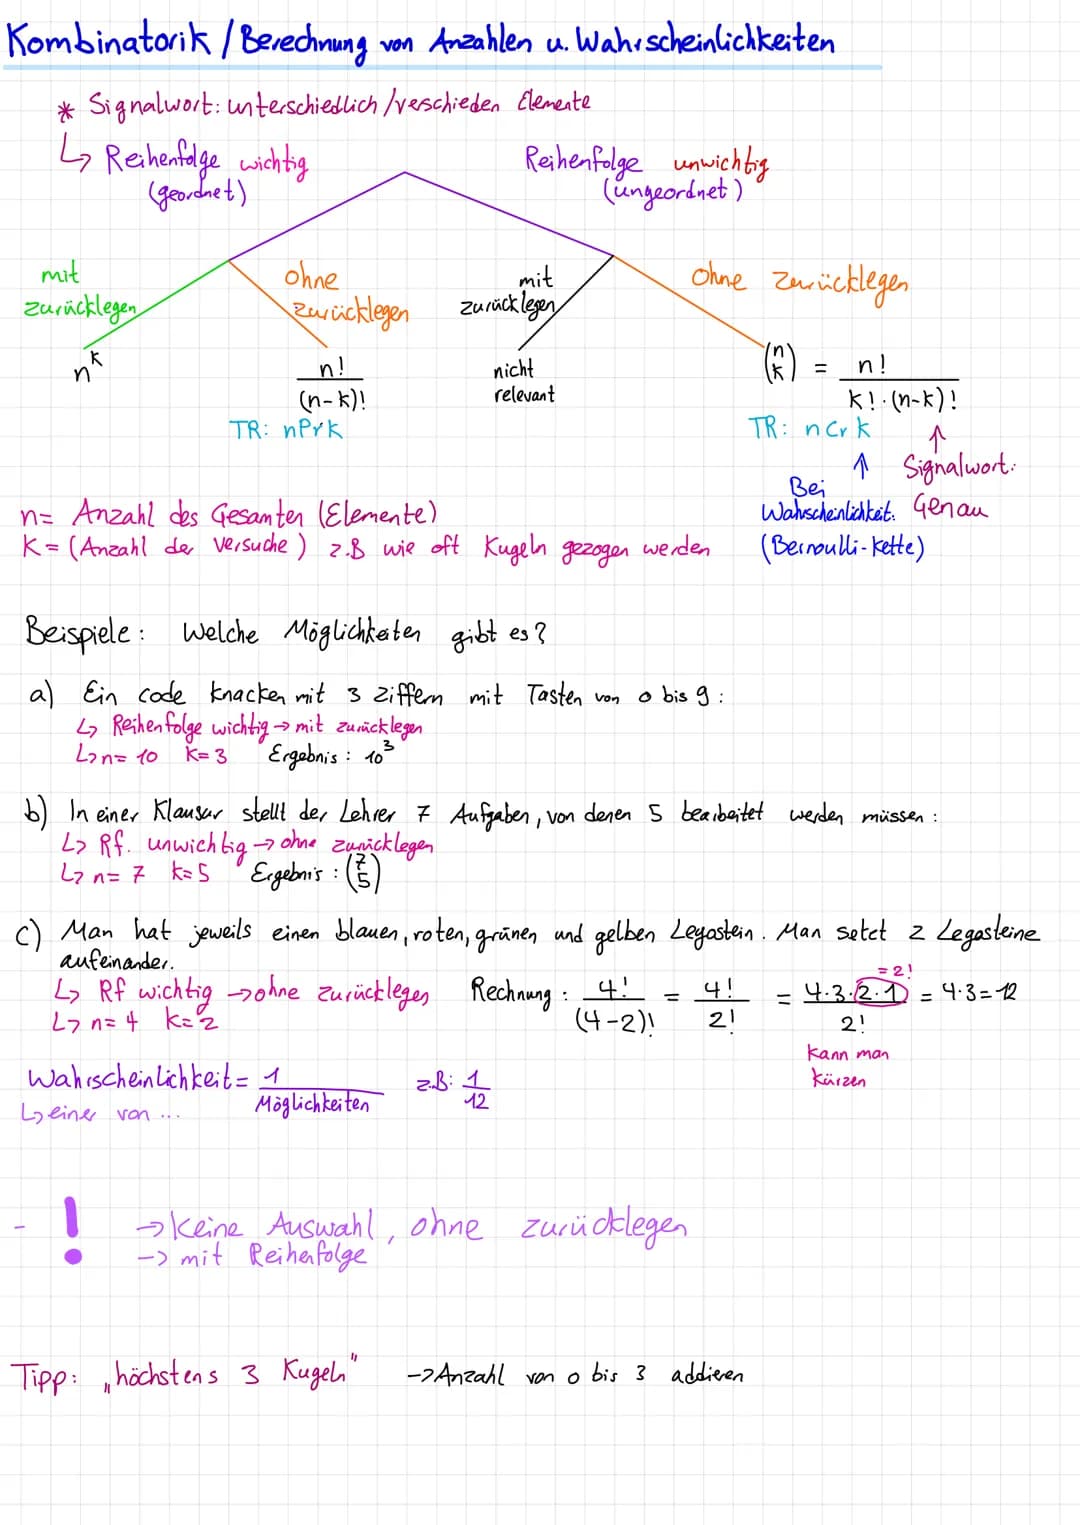 Kombinatorik / Berechnung von Anzahlen u. Wahrscheinlichkeiten
* Signalwort: unterschiedlich / verschieden Elemente
↳ Reihenfolge wichtig (geordnet)
Reihenfolge unwichtig (ungeordnet)
mit zurücklegen
ohne zurücklegen
mit zurücklegen
ohne zurücklegen
n^k
n! / (n-k)!
TR: nPrk
nicht relevant
(n über k) = n! / (k! · (n-k)!)
TR: nCrk
↑ Bei Wahrscheinlichkeit. (Bernoulli-Kette)
↑ Signalwort: Genau
n= Anzahl des Gesamten (Elemente)
K= (Anzahl der Versuche) z.B wie oft Kugeln gezogen werden
Beispiele: Welche Möglichkeiten gibt es?
a) Ein code knacken mit 3 Ziffern mit Tasten von 0 bis 9:
↳ Reihenfolge wichtig → mit zurücklegen
↳ n= 10 k= 3 Ergebnis: 10^3
b) In einer Klausur stellt der Lehrer 7 Aufgaben, von denen 5 bearbeitet werden müssen:
↳ Rf. unwichtig → ohne zurücklegen
↳ n= 7 k= 5 Ergebnis: (7 über 5)
c) Man hat jeweils einen blauen, roten, grünen und gelben Legostein. Man setzt 2 Legosteine
aufeinander.
↳ Rf wichtig → ohne zurücklegen Rechnung: 4! / (4-2)! = 4! / 2! = 4·3·2·1 / 2! = 4·3=12
= 2!
↳ n= 4 k= 2
kann man kürzen
Wahrscheinlichkeit= 1 / Möglichkeiten z.B: 1/12
↳ einer von ...
- ! → Keine Auswahl, ohne zurücklegen
→ mit Reihenfolge
Tipp: „höchstens 3 Kugeln" → Anzahl von 0 bis 3 addieren